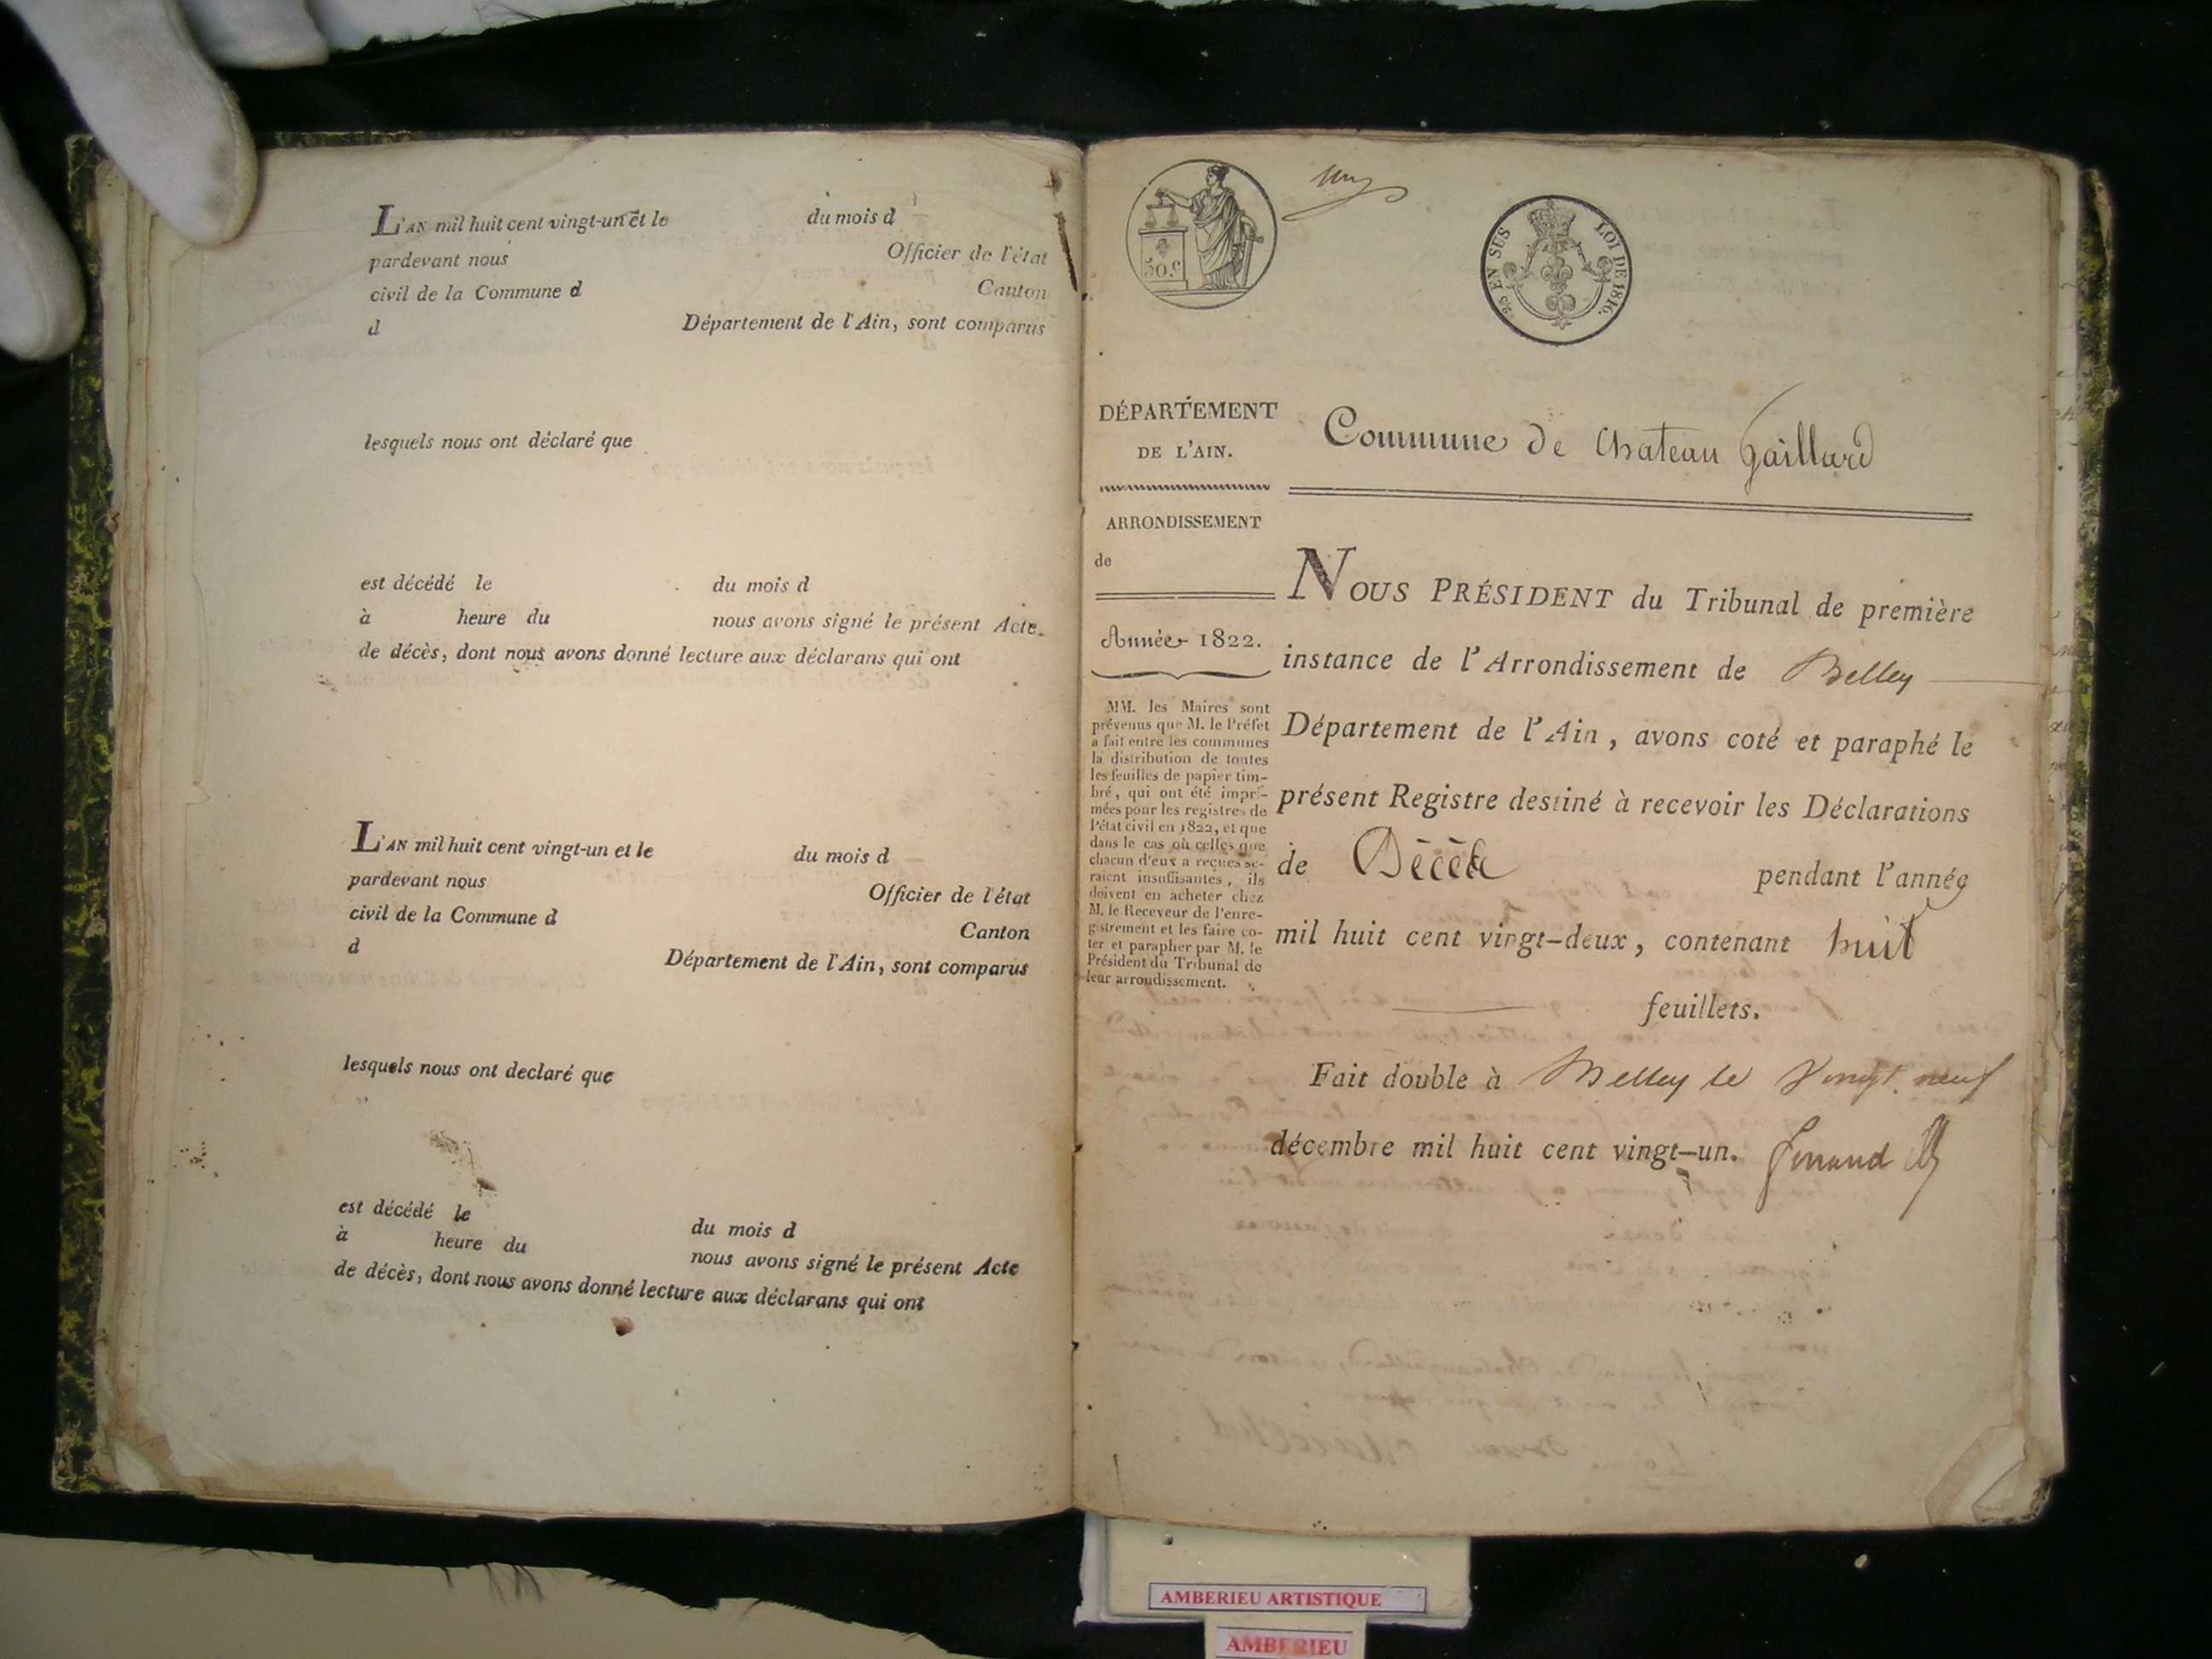 L'AN mil huit cent vingt-un et le du mois d
pardevant nous Officier de l'état
civil de la Commune d Canton
d Département de l'Ain, sont comparus
lesquels nous ont déclaré que
est décédé le du mois d
à heure du nous avons signé le présent Acte
de décès, dont nous avons donné lecture aux déclarans qui ont
L'AN mil huit cent vingt-un et le du mois d
pardevant nous Officier de l'état
civil de la Commune d Canton
d Département de l'Ain, sont comparus
lesquels nous ont declaré que
est décédé le du mois d
à heure du nous avons signé le présent Acte
de décès, dont nous avons donné lecture aux déclarans qui ont
50.c
un
25 EN SUS LOI DE 1816.
DÉPARTEMENT
DE L'AIN.
ARRONDISSEMENT
de
Année 1822.
MM. les Maires sont
prévenus que M. le Préfet
a fait entre les communes
la distribution de toutes
les feuilles de papier tim-
bré, qui ont été impri-
mées pour les registres de
l'état civil en 1822, et que
dans le cas où celles que
chacun d'eux a reçues se-
raient insuffisantes, ils
doivent en acheter chez
M. le Receveur de l'enre-
gistrement et les faire co-
ter et parapher par M. le
Président du Tribunal de
leur arrondissement.
Commune de Chateau Gaillard
NOUS PRÉSIDENT du Tribunal de première
instance de l'Arrondissement de Belley
Département de l'Ain, avons coté et paraphé le
présent Registre destiné à recevoir les Déclarations
de Décès pendant l'année
mil huit cent vingt-deux, contenant huit
feuillets.
Fait double à Belley le Vingt neuf
décembre mil huit cent vingt-un.
AMBERIEU ARTISTIQUE
AMBERIEU